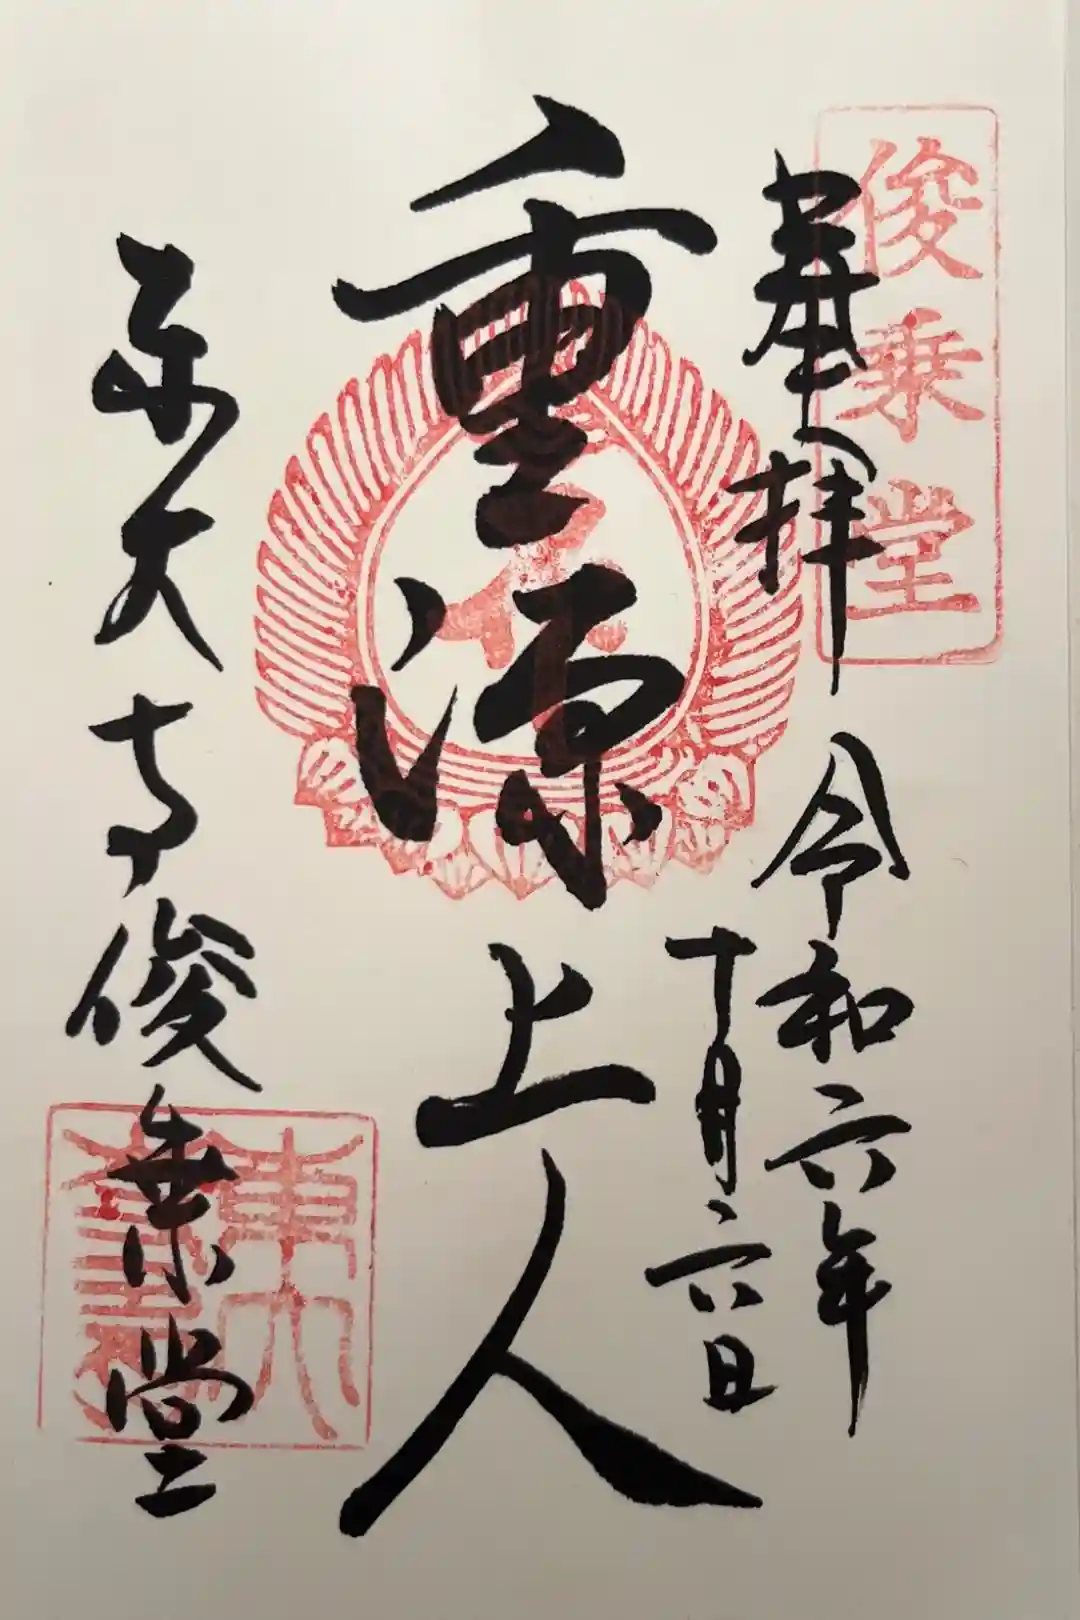 俊乗堂
奉拝
令和六年
十月六日
重源上人
東大寺俊乗堂